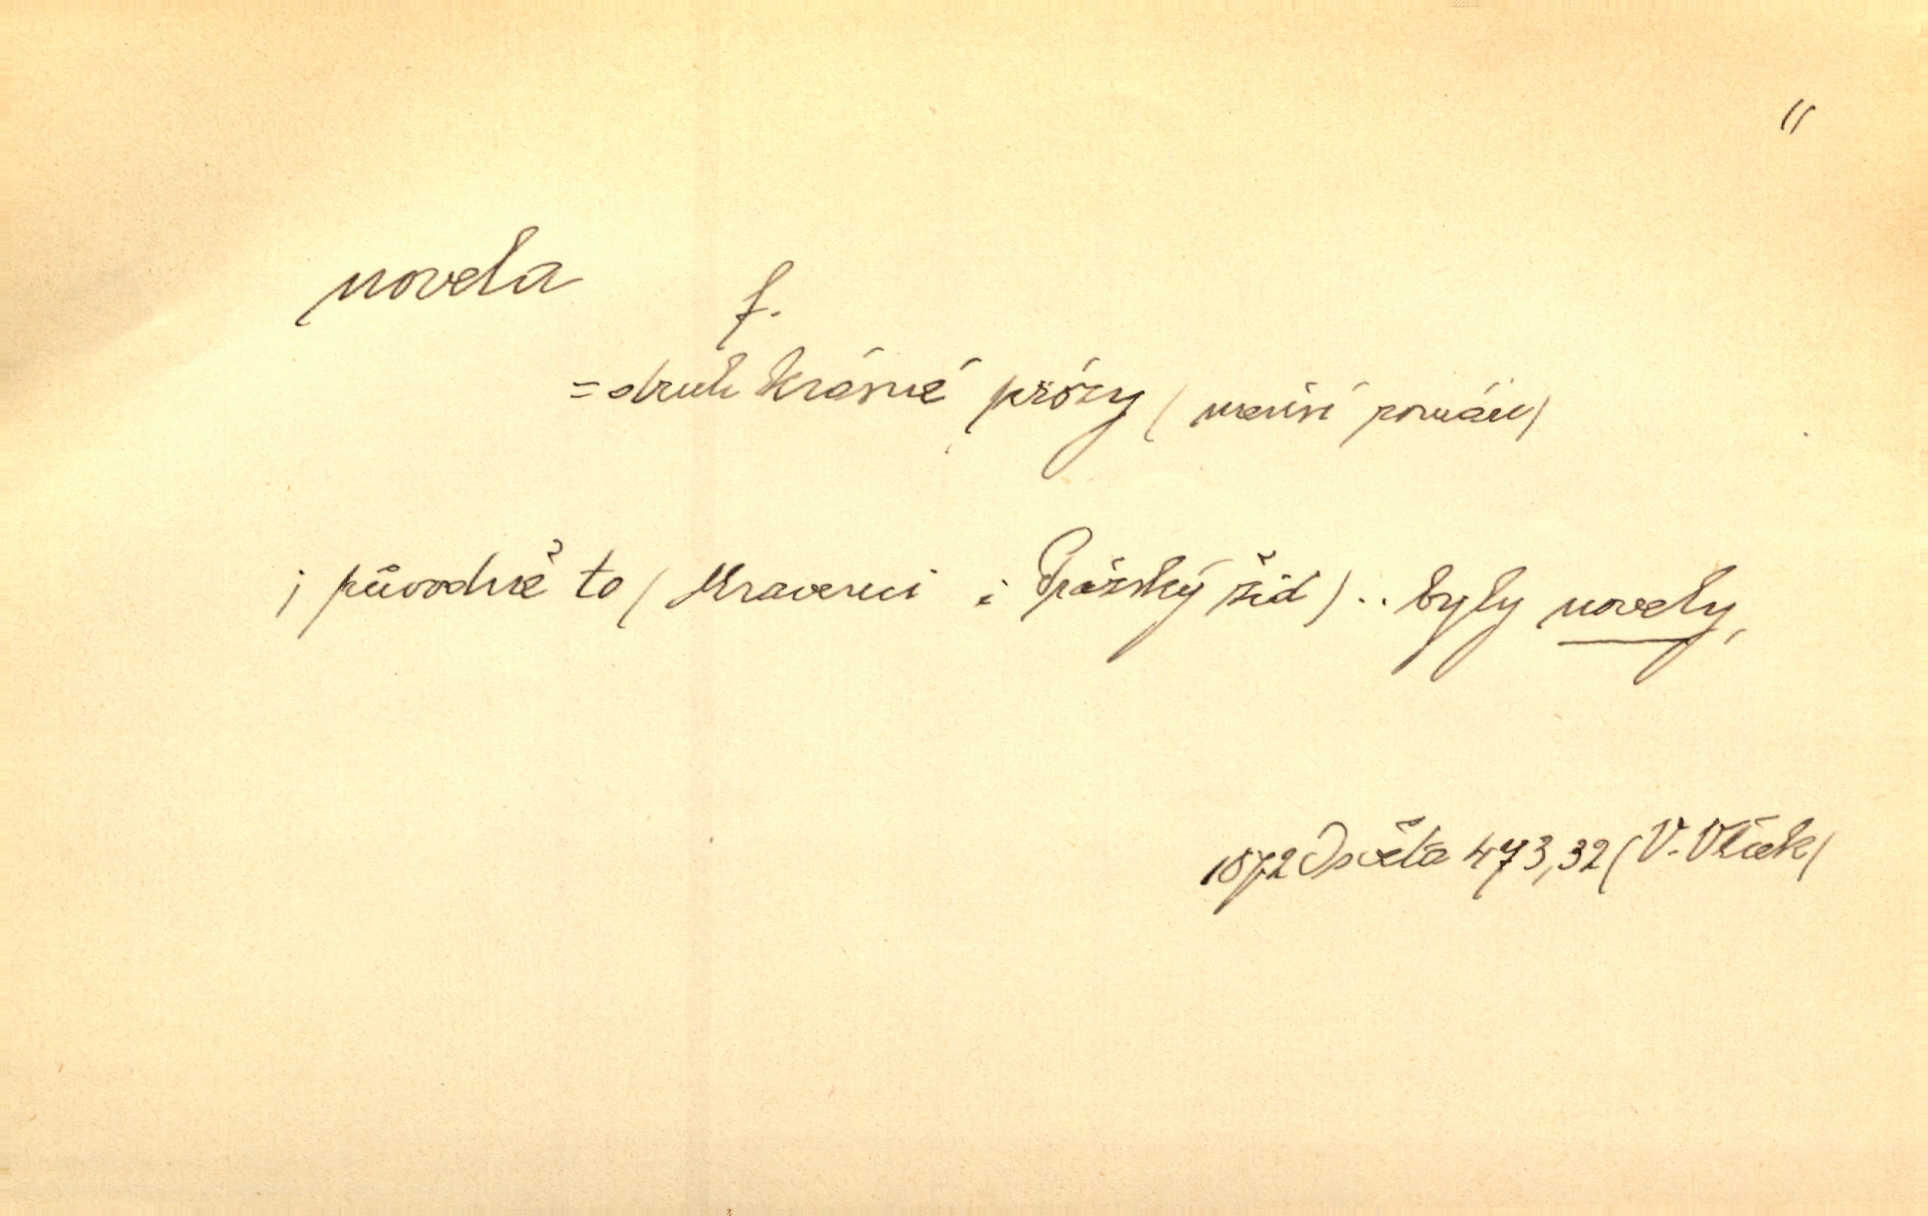 "
novela
f.
= druh krásné prózy (menší román)
; původně to (Mravenci i Pražský žid) .. byly novely,
1872 Osvěta 473,32 (V. Vlček)